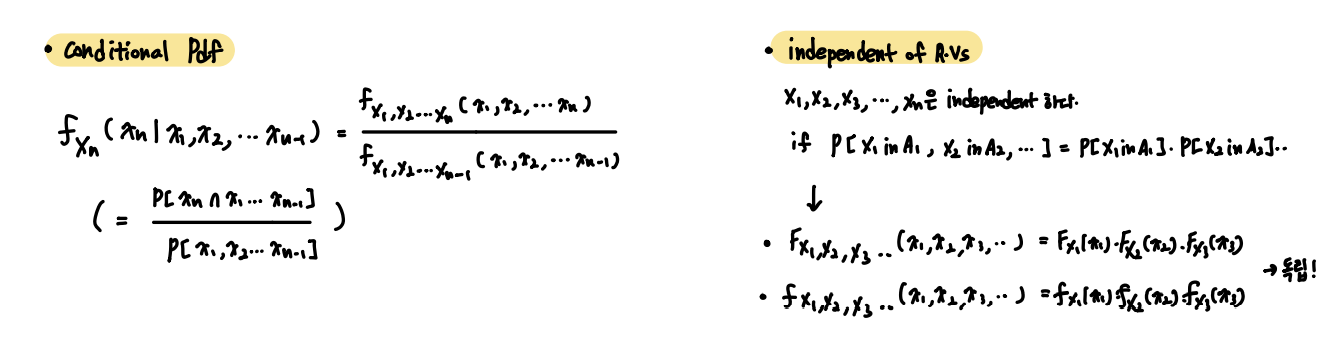 • Conditional Pdf
f_{X_n}(x_n | x_1, x_2, ... x_{n-1}) = \frac{f_{X_1, X_2 ... X_n}(x_1, x_2, ... x_n)}{f_{X_1, X_2 ... X_{n-1}}(x_1, x_2, ... x_{n-1})}
( = \frac{P[x_n ∩ x_1 ... x_{n-1}]}{P[x_1, x_2 ... x_{n-1}]} )
• independent of R.Vs
X_1, X_2, X_3, ..., X_n은 independent 하다.
if P[X_1 in A_1, X_2 in A_2, ...] = P[X_1 in A_1] · P[X_2 in A_2]..
↓
• F_{X_1, X_2, X_3 ..}(x_1, x_2, x_3, ..) = F_{X_1}(x_1) · F_{X_2}(x_2) · F_{X_3}(x_3)
→ 독립!
• f_{X_1, X_2, X_3 ..}(x_1, x_2, x_3, ..) = f_{X_1}(x_1) f_{X_2}(x_2) · f_{X_3}(x_3)